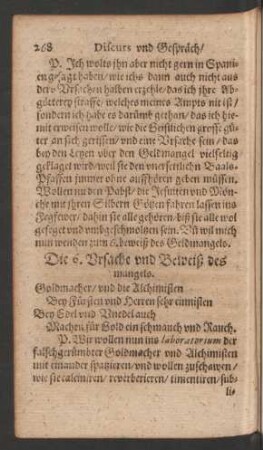 268 Discurs vnd Gespräch/
P. Ich wolts ihn aber nicht gern in Spani-
en gesagt haben/ wie ichs dann auch nicht aus
der Vrsachen halben erzehle/ das ich ihre Ab-
götterey straffe/ welches meines Ampts nit ist/
sondern ich habe es darumb gethan/ das ich hie-
mit erweisen wolle/ wie die Geistlichen grosse gü-
ter an sich gerissen/ und eine Vrsache sein/ das
bey den Leyen vber den Geldmangel vielfeltig
geklaget wird/ weil sie den vnersettlichen Baals-
Pfaffen immer ohne auffhören geben müssen.
Wollen nu den Pabst/ die Jesuiten vnd Mön-
che mit ihren Silbern Götzen fahren lassen ins
Fegfewer/ dahin sie alle gehören/ biß sie alle wol
gefeget vnd vmbgeschmoltzen sein. Vñ wil mich
nun wenden zum 6. beweiß des Geldmangels.
Die 6. Vrsache vnd Beweiß des
mangels.
Goldmacher/ vnd die Alchimisten
Bey Fürsten vnd Herren sehr einnisten
Bey Edel vnd Vnedel auch
Machen für Gold ein schmauch vnd Rauch.
P. Wir wollen nun ins laboratorium der
falschgerümbter Goldmacher vnd Alchimisten
mit einander spatzieren/ vnd wollen zuschawen/
wie sie calciniren/ reverberieren/ timentiren/ sub-
li-